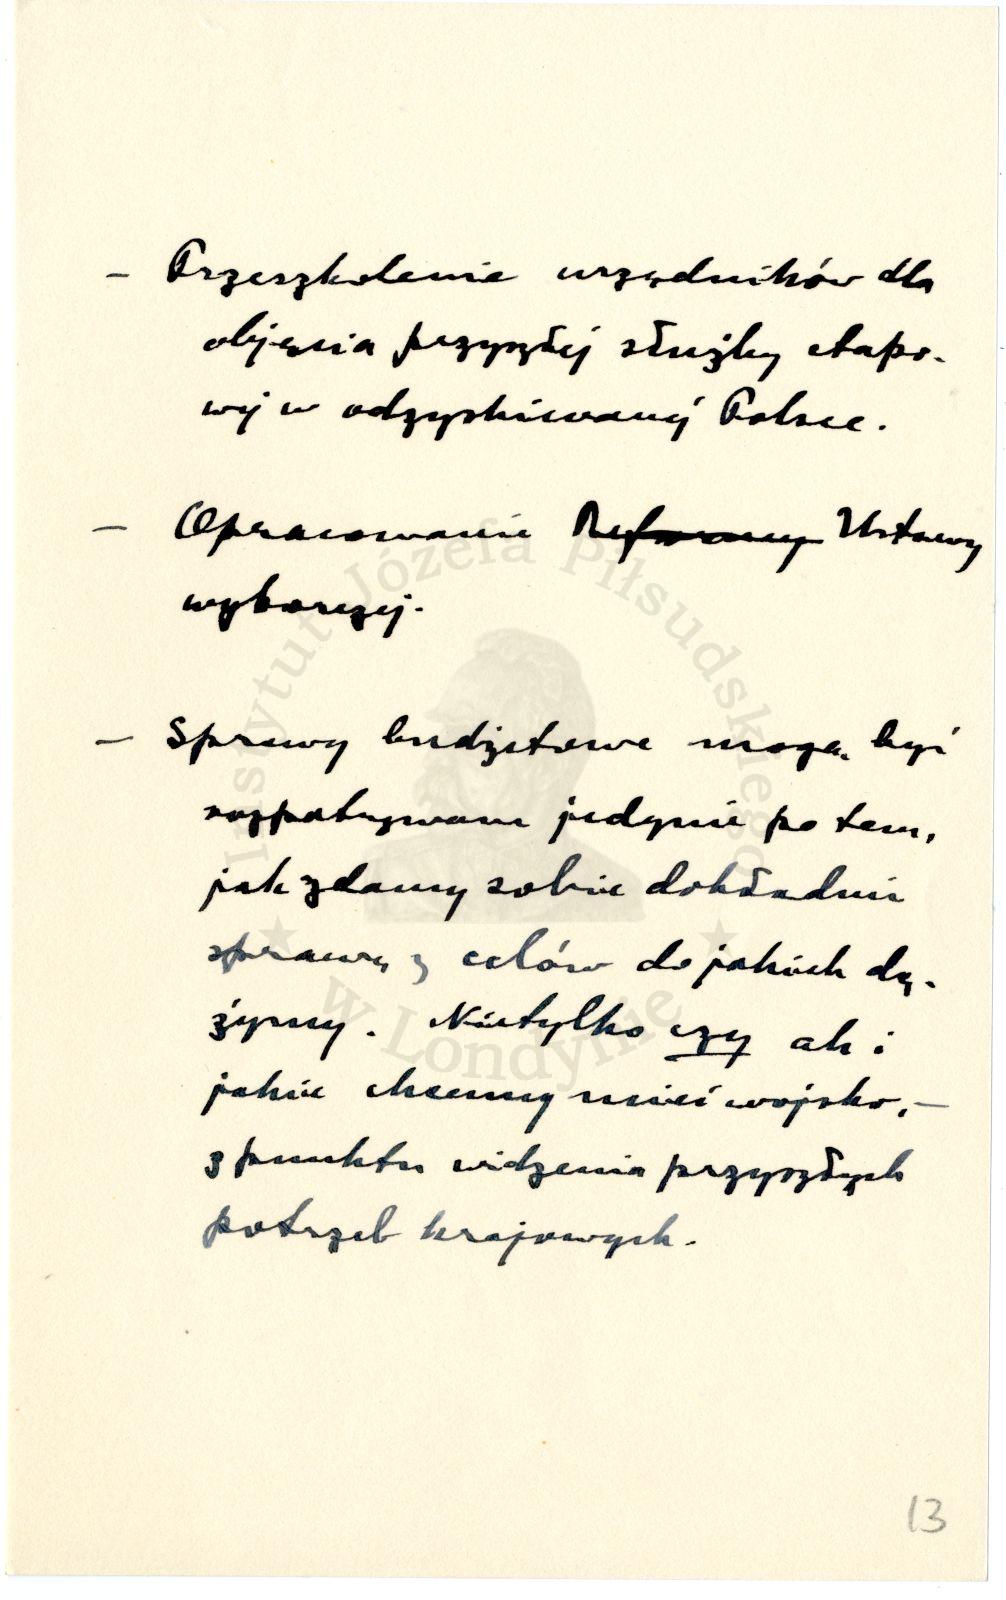 – Przeszkolenie urzędników dla
objęcia przyszłej służby etapo-
wej w odzyskiwanej Polsce.
– Opracowanie Reformy Ustawy
wyborczej.
– Sprawy budżetowe mogą być
rozpatrywane jedynie po tem,
jak zdamy sobie dokładnie
sprawę z celów do jakich dą-
żymy. Nietylko czy ale i
jakie chcemy mieć wojsko, –
z punktu widzenia przyszłych
potrzeb krajowych.
13
Instytut Józefa Piłsudskiego
w Londynie